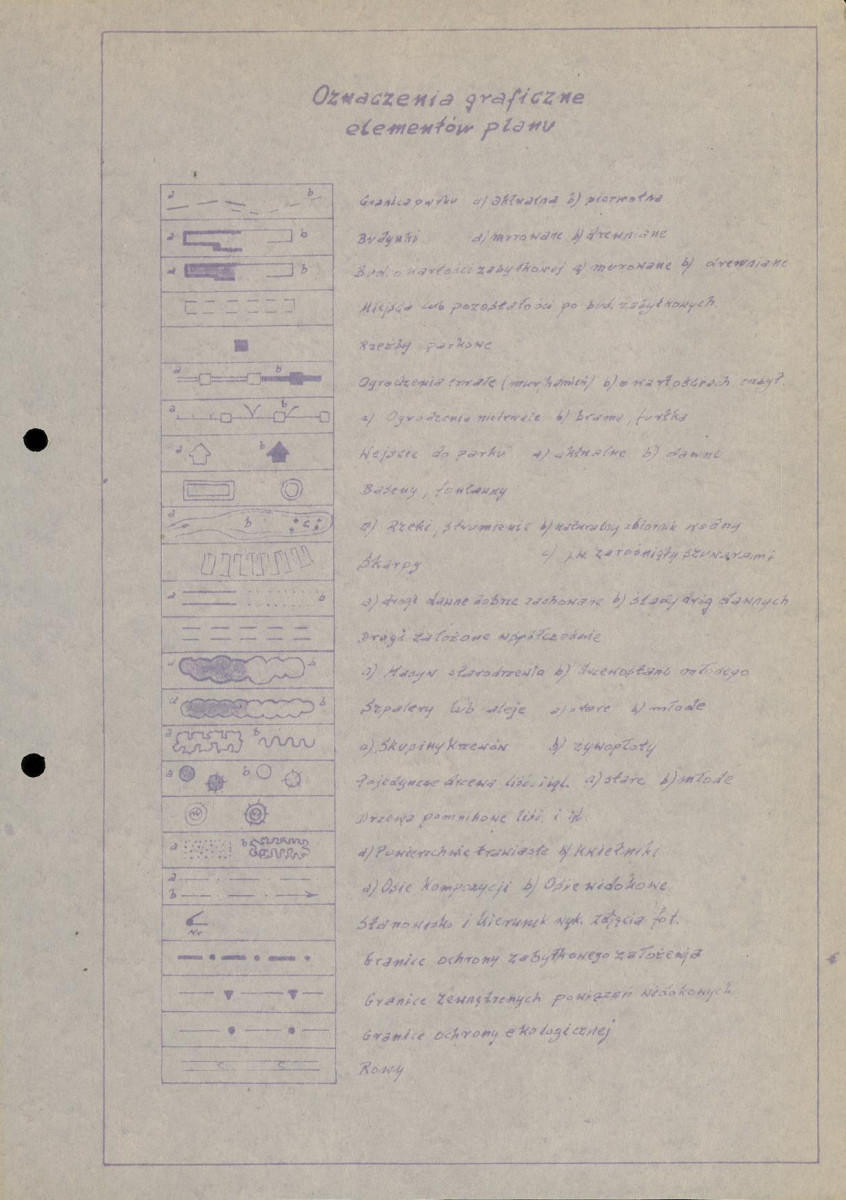 Oznaczenia graficzne
elementów planu
a b Granica parku a) aktualna b) pierwotna
a b Budynki a) murowane b) drewniane
a b Bud. o wartości zabytkowej a) murowane b) drewniane
Miejsca lub pozostałości po bud. zabytkowych.
Rzeźby parkowe
a b Ogrodzenia trwałe (mur, kamień) b) o wartościach zabyt.
a b a) Ogrodzenia nietrwałe b) brama, furtka
a b Wejście do parku a) aktualne b) dawne
Baseny, fontanny
a b c a) Rzeki, strumienie b) naturalny zbiornik wodny
Skarpy c) j.w. zarośnięty szuwarami
a b a) drogi dawne dobrze zachowane b) ślady dróg dawnych
Drogi założone współcześnie
a b a) Masyw starodrzewia b) drzewostanu młodego
a b Szpalery lub aleje a) stare b) młode
a b a) Skupiny krzewów b) żywopłoty
a b Pojedyncze drzewa liśc. i igl. a) stare b) młode
Drzewa pomnikowe liśc. i ik.
a b a) Powierzchnie trawiaste b) Kwietniki
a b a) Osie kompozycji b) Osie widokowe
Nr Stanowisko i kierunek wyk. zdjęcia fot.
Granice ochrony zabytkowego założenia
Granice zewnętrznych powiązań widokowych
Granice ochrony ekologicznej
Rowy